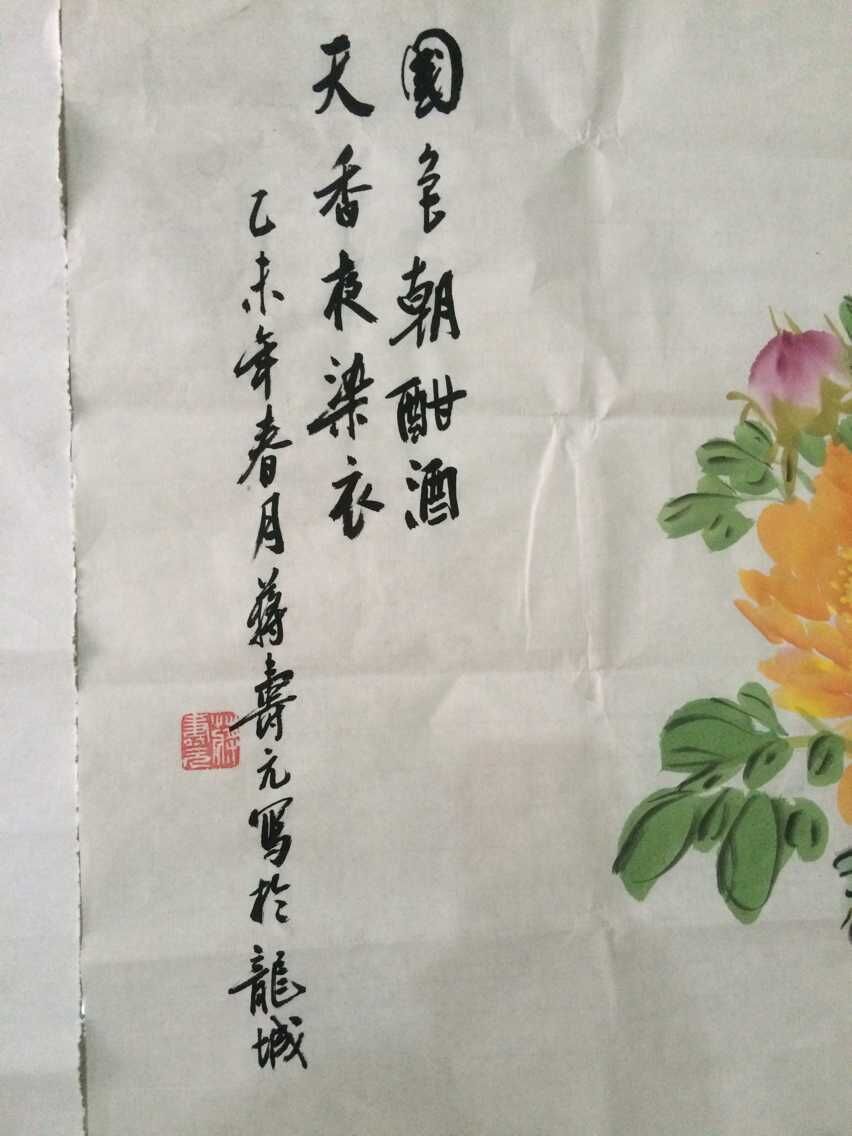 國色朝酣酒
天香夜染衣
乙未年春月蔣壽元寫於龍城
蔣壽元